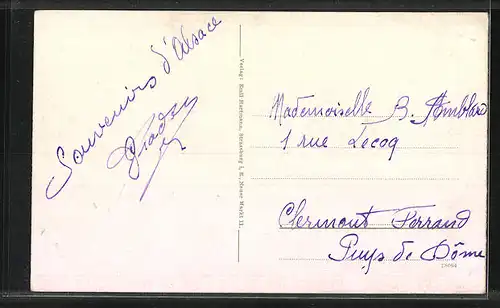 Souvenirs d'Alsace
Verlag: Emil Hartmann, Strassburg i. E., Neuer Markt 11.
Mademoiselle B. Amblard
1 rue Lecoq
Clermont Ferrand
Puys de Dôme